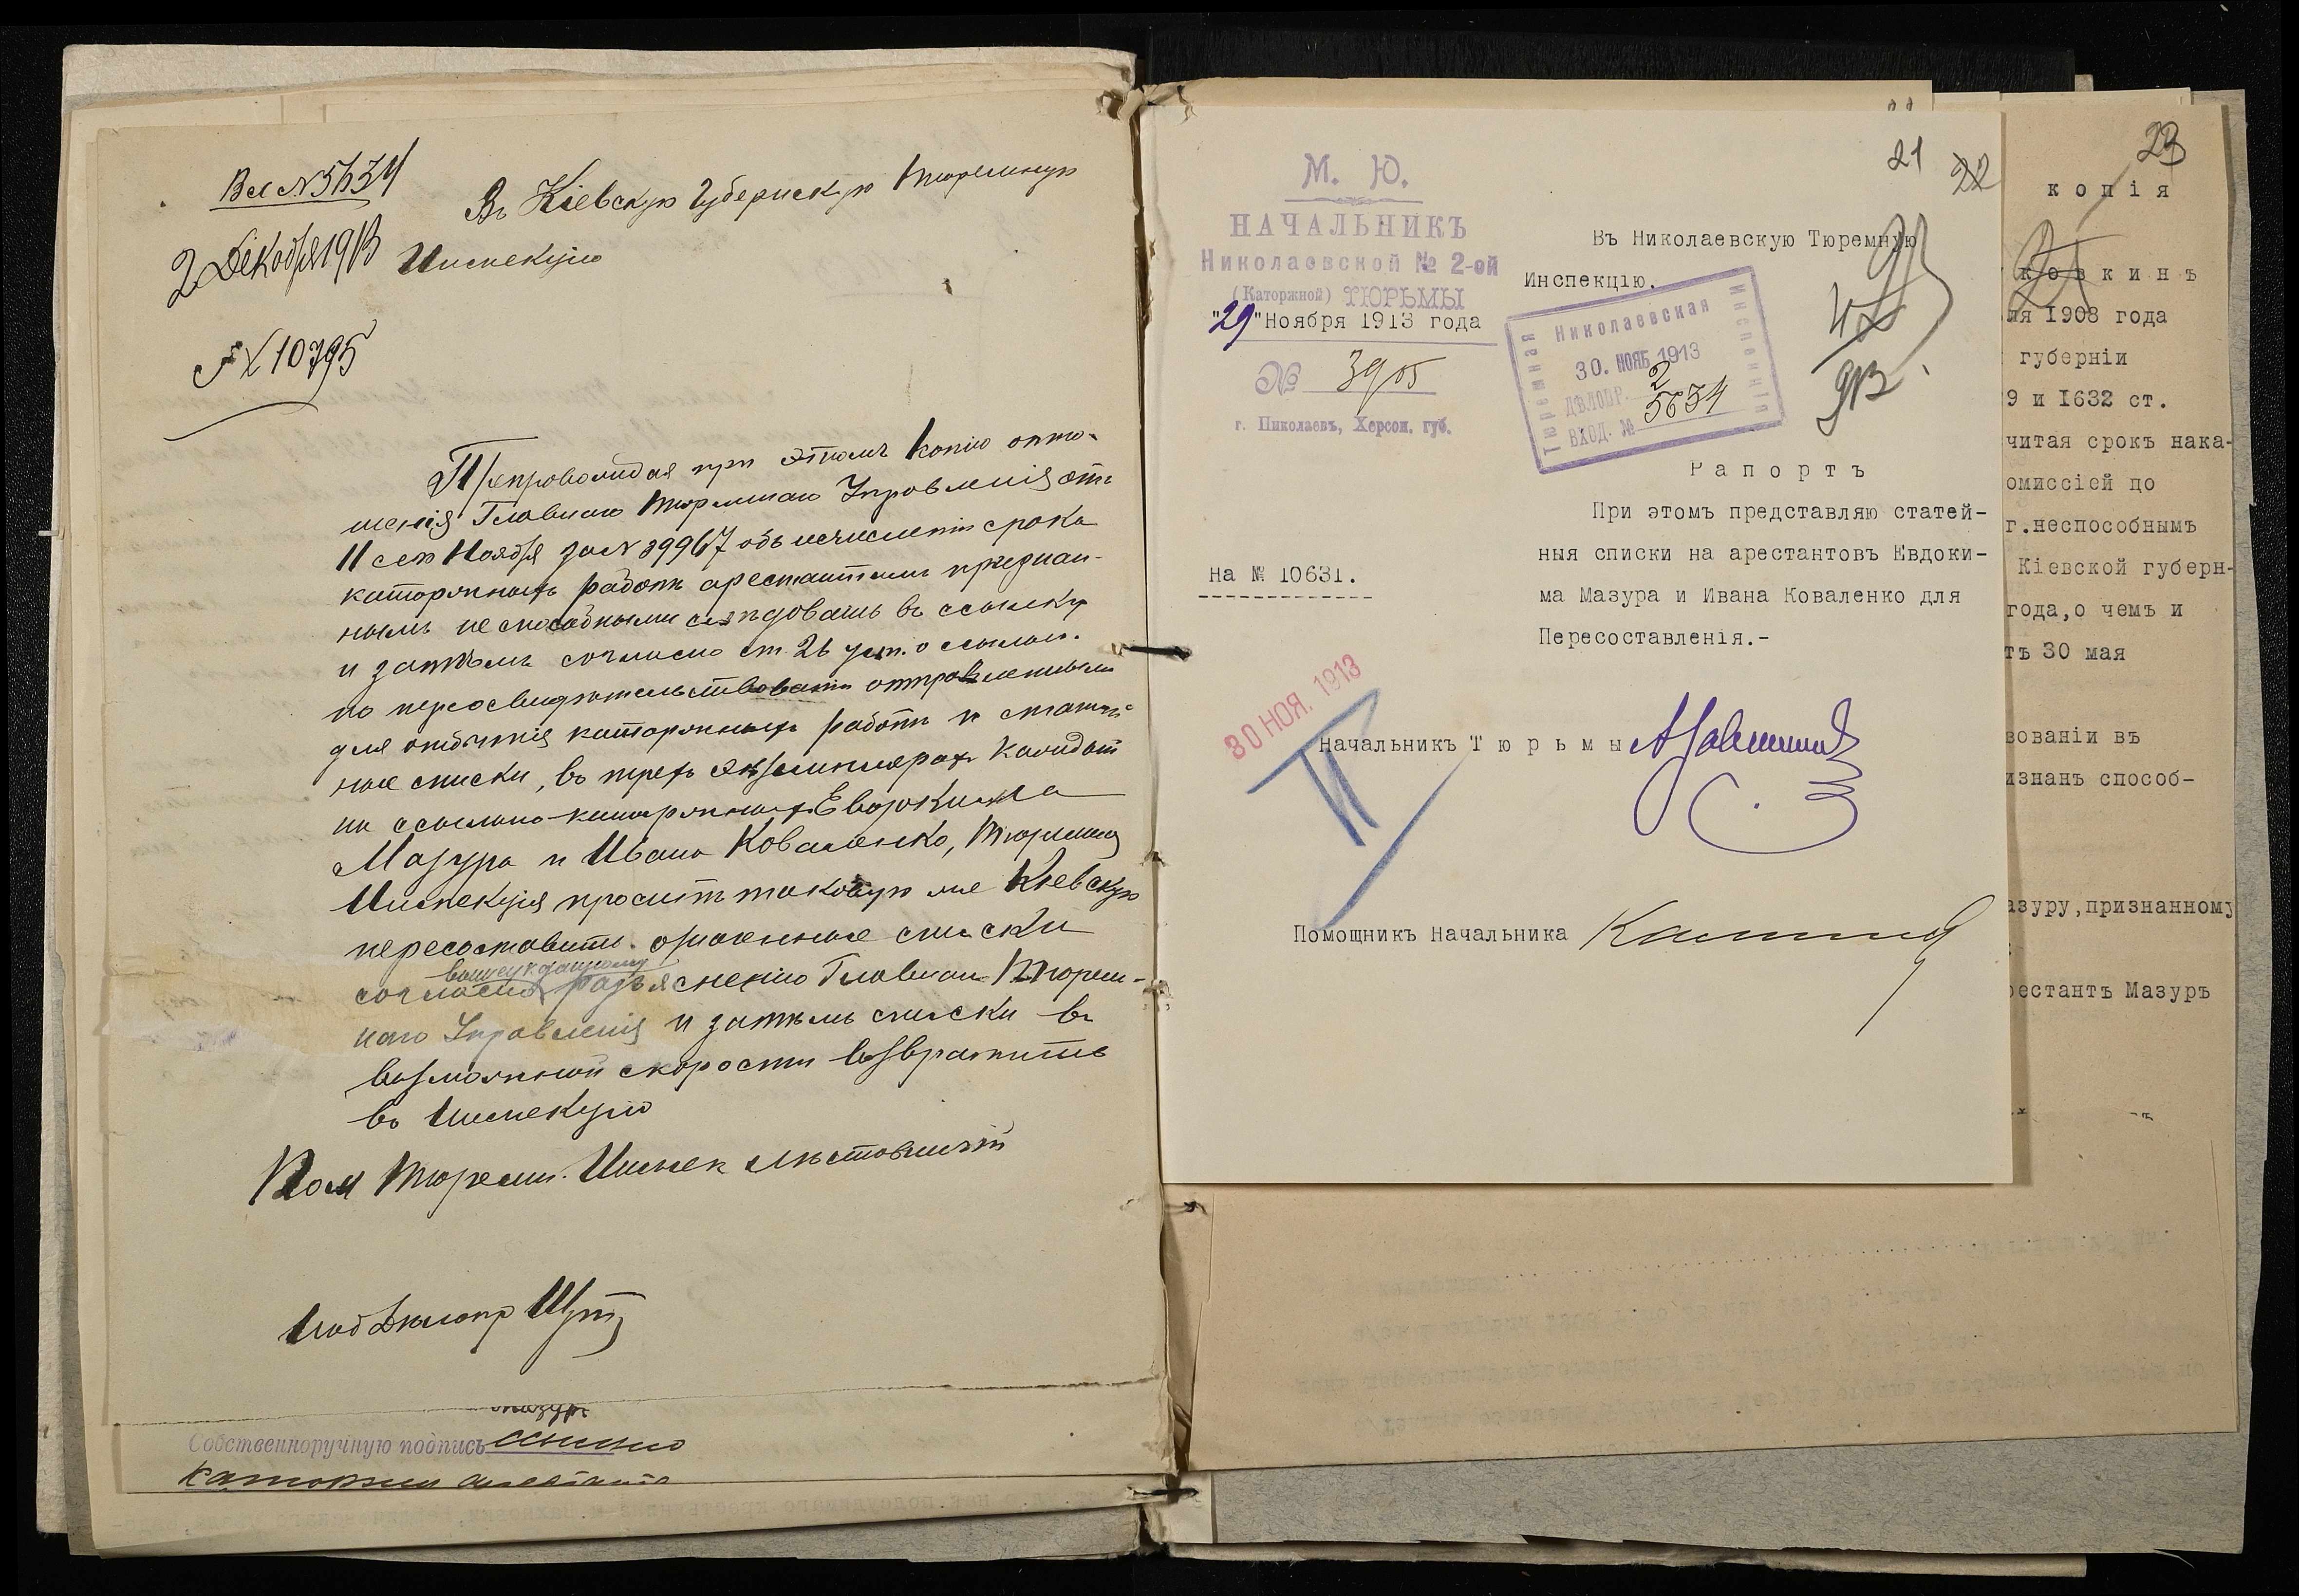 Вх N 5634
2 Декабря 1913
N 10795
Въ Кіевскую Губернскую Тюремную
Инспекцію
Препровождая при этомъ копію отно-
шенія Главнаго Тюремнаго Управленія отъ
11 сего Ноября за N 39967 объ исчисленіи срока
каторжныхъ работъ арестантамъ признан-
нымъ неспособными слѣдовать въ ссылку
и затѣмъ согласно ст. 26 уст. о ссыльн.
по переосвидѣтельствованіи отправленнымъ
для отбытія каторжныхъ работъ и статей-
ные списки, въ трехъ экземплярахъ каждый
на ссыльно-каторжныхъ Евдокима
Мазура и Ивана Коваленко, Тюремная
Инспекція проситъ таковую же Кіевскую
пересоставить означенные списки
вышеуказанному
согласно разъясненію Главнаго Тюрем-
наго Управленія и затѣмъ списки въ
возможной скорости возвратить
въ Инспекцію
Пом Тюремн. Инспек
Мазур
Собственноручную подпись ссыльно
каторжн арестанта
21 22
М. Ю.
НАЧАЛЬНИКЪ
Николаевской № 2-ой
(Каторжной) ТЮРЬМЫ
"29" Ноября 1913 года
№ 3905
г. Николаевъ, Херсон. губ.
На № 10631.
Въ Николаевскую Тюремную
Инспекцію.
Николаевская
Тюремная
Инспекція
30. НОЯБ. 1913
ДѢЛОПР. 2
ВХОД. № 5634
Рапортъ
При этомъ представляю статей-
ныя списки на арестантовъ Евдоки-
ма Мазура и Ивана Коваленко для
Пересоставленія.-
30 НОЯ. 1913
Начальникъ Тюрьмы
Помощникъ Начальника
23
копія
ковкинъ
ля 1908 года
губерніи
9 и 1632 ст.
читая срокъ нака-
омиссіей по
г.неспособнымъ
Кіевской губерн-
года,о чемъ и
тъ 30 мая
зованіи въ
изнанъ способ-
азуру,признанному
рестантъ Мазуръ